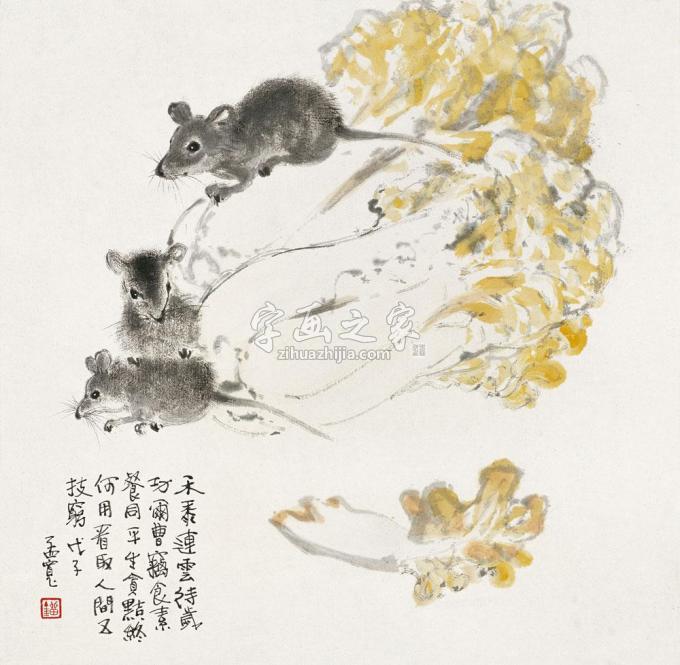 字画之家
zihuazhijia.com
禾黍連雲待歲
功爾曹竊食素
餐同平生貪黠終
何用看取人間五
技窮 戊子
孟寬